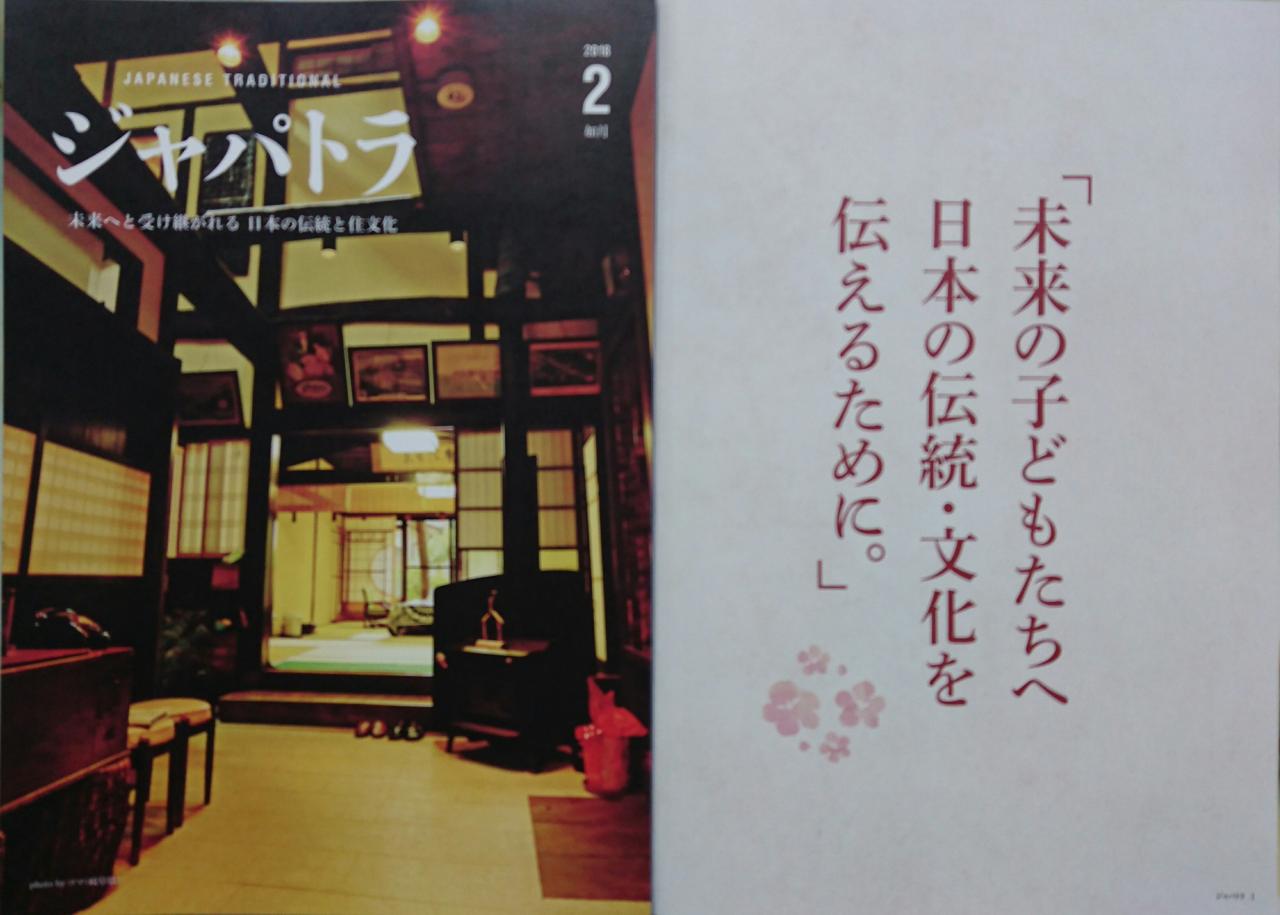 JAPANESE TRADITIONAL
ジャパトラ
未来へと受け継がれる 日本の伝統と住文化
2018
2
如月
photo by
「未来の子どもたちへ
日本の伝統・文化を
伝えるために。」
ジャパトラ